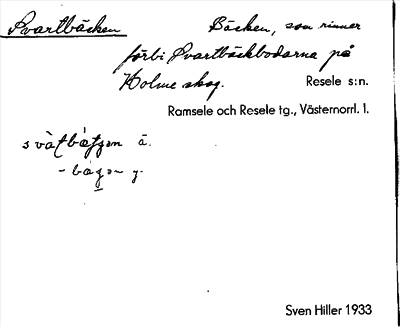 Svartbäcken
Bäcken, som rinner
förbi Svartbäckbodarna på
Holme skog.
Resele s:n.
Ramsele och Resele tg., Västernorrl. l.
ä.
y.
Sven Hiller 1933